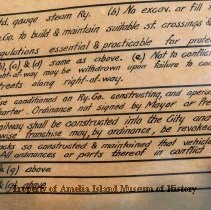 d. gauge steam Ry. (b) No excav. or fill
Co. to build & maintain suitable st. crossings &
gulations essential & practicable for prote
b), (c) & (d) same as above. (e) Not to conflict
ht-of-way may be withdrawn upon failure to co
treets along right-of-way.
re conditioned on Ry. Co. constructing, and oper
harter. Ordinance not signed by Mayor or Pre
ailway shall be constructed into the City and
wise franchise may, by ordinance, be revoked
cks so constructed & maintained that vehicle
All ordinances or parts thereof in conflict
& (g) above
& (g) above
Property of Amelia Island Museum of History